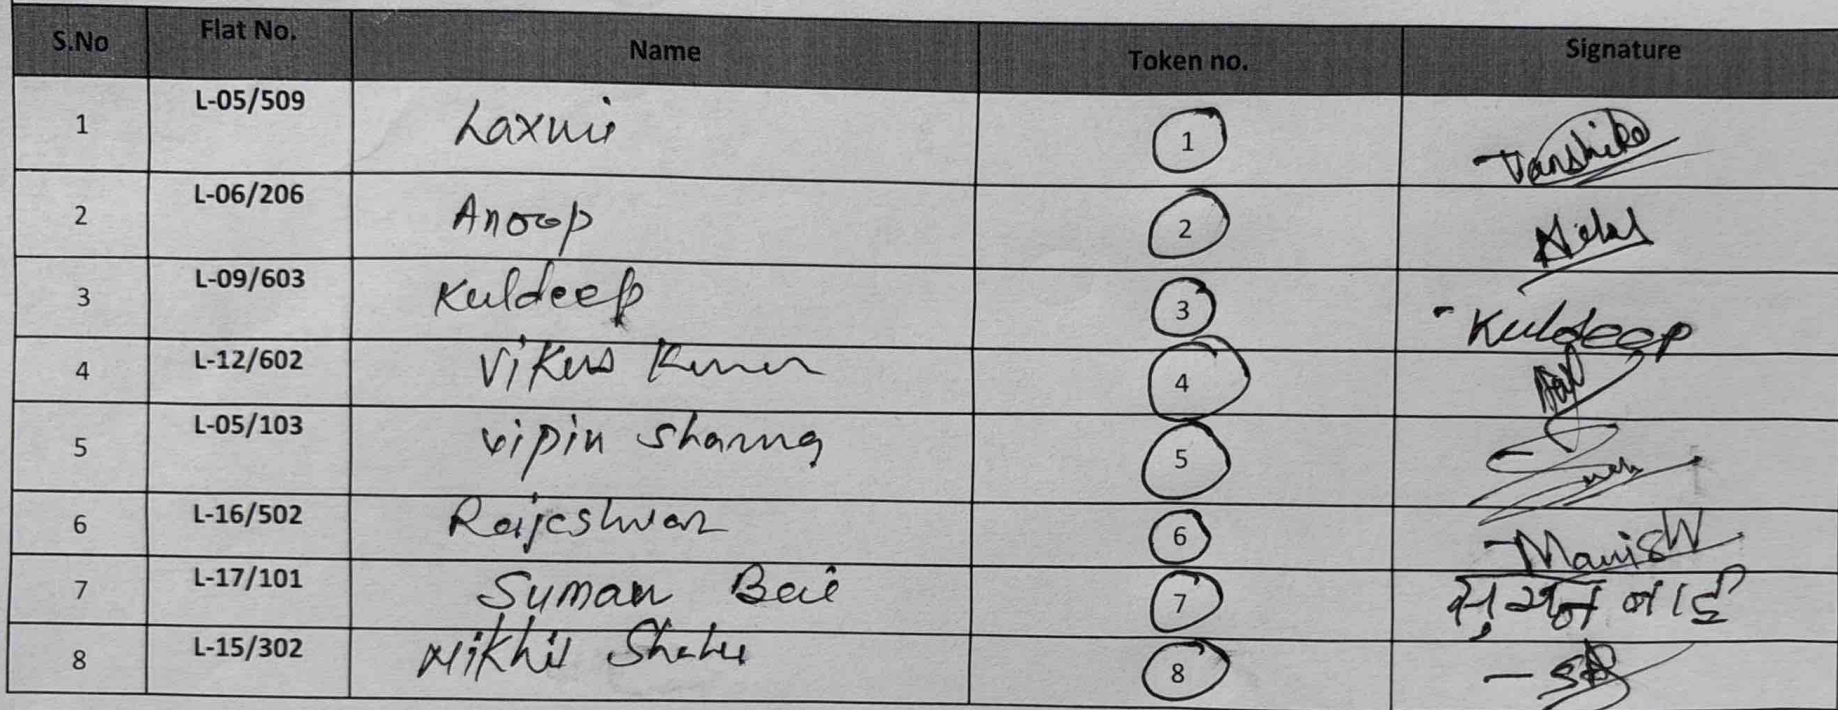 S.No Flat No. Name Token no. Signature
1 L-05/509 Laxmi 1 Vanshika
2 L-06/206 Anoop 2
3 L-09/603 Kuldeep 3 Kuldeep
4 L-12/602 Vikas Kumar 4
5 L-05/103 Vipin Sharma 5
6 L-16/502 Rajeshwar 6 Manish
7 L-17/101 Suman Bai 7 सुमन बाई
8 L-15/302 Nikhil 8